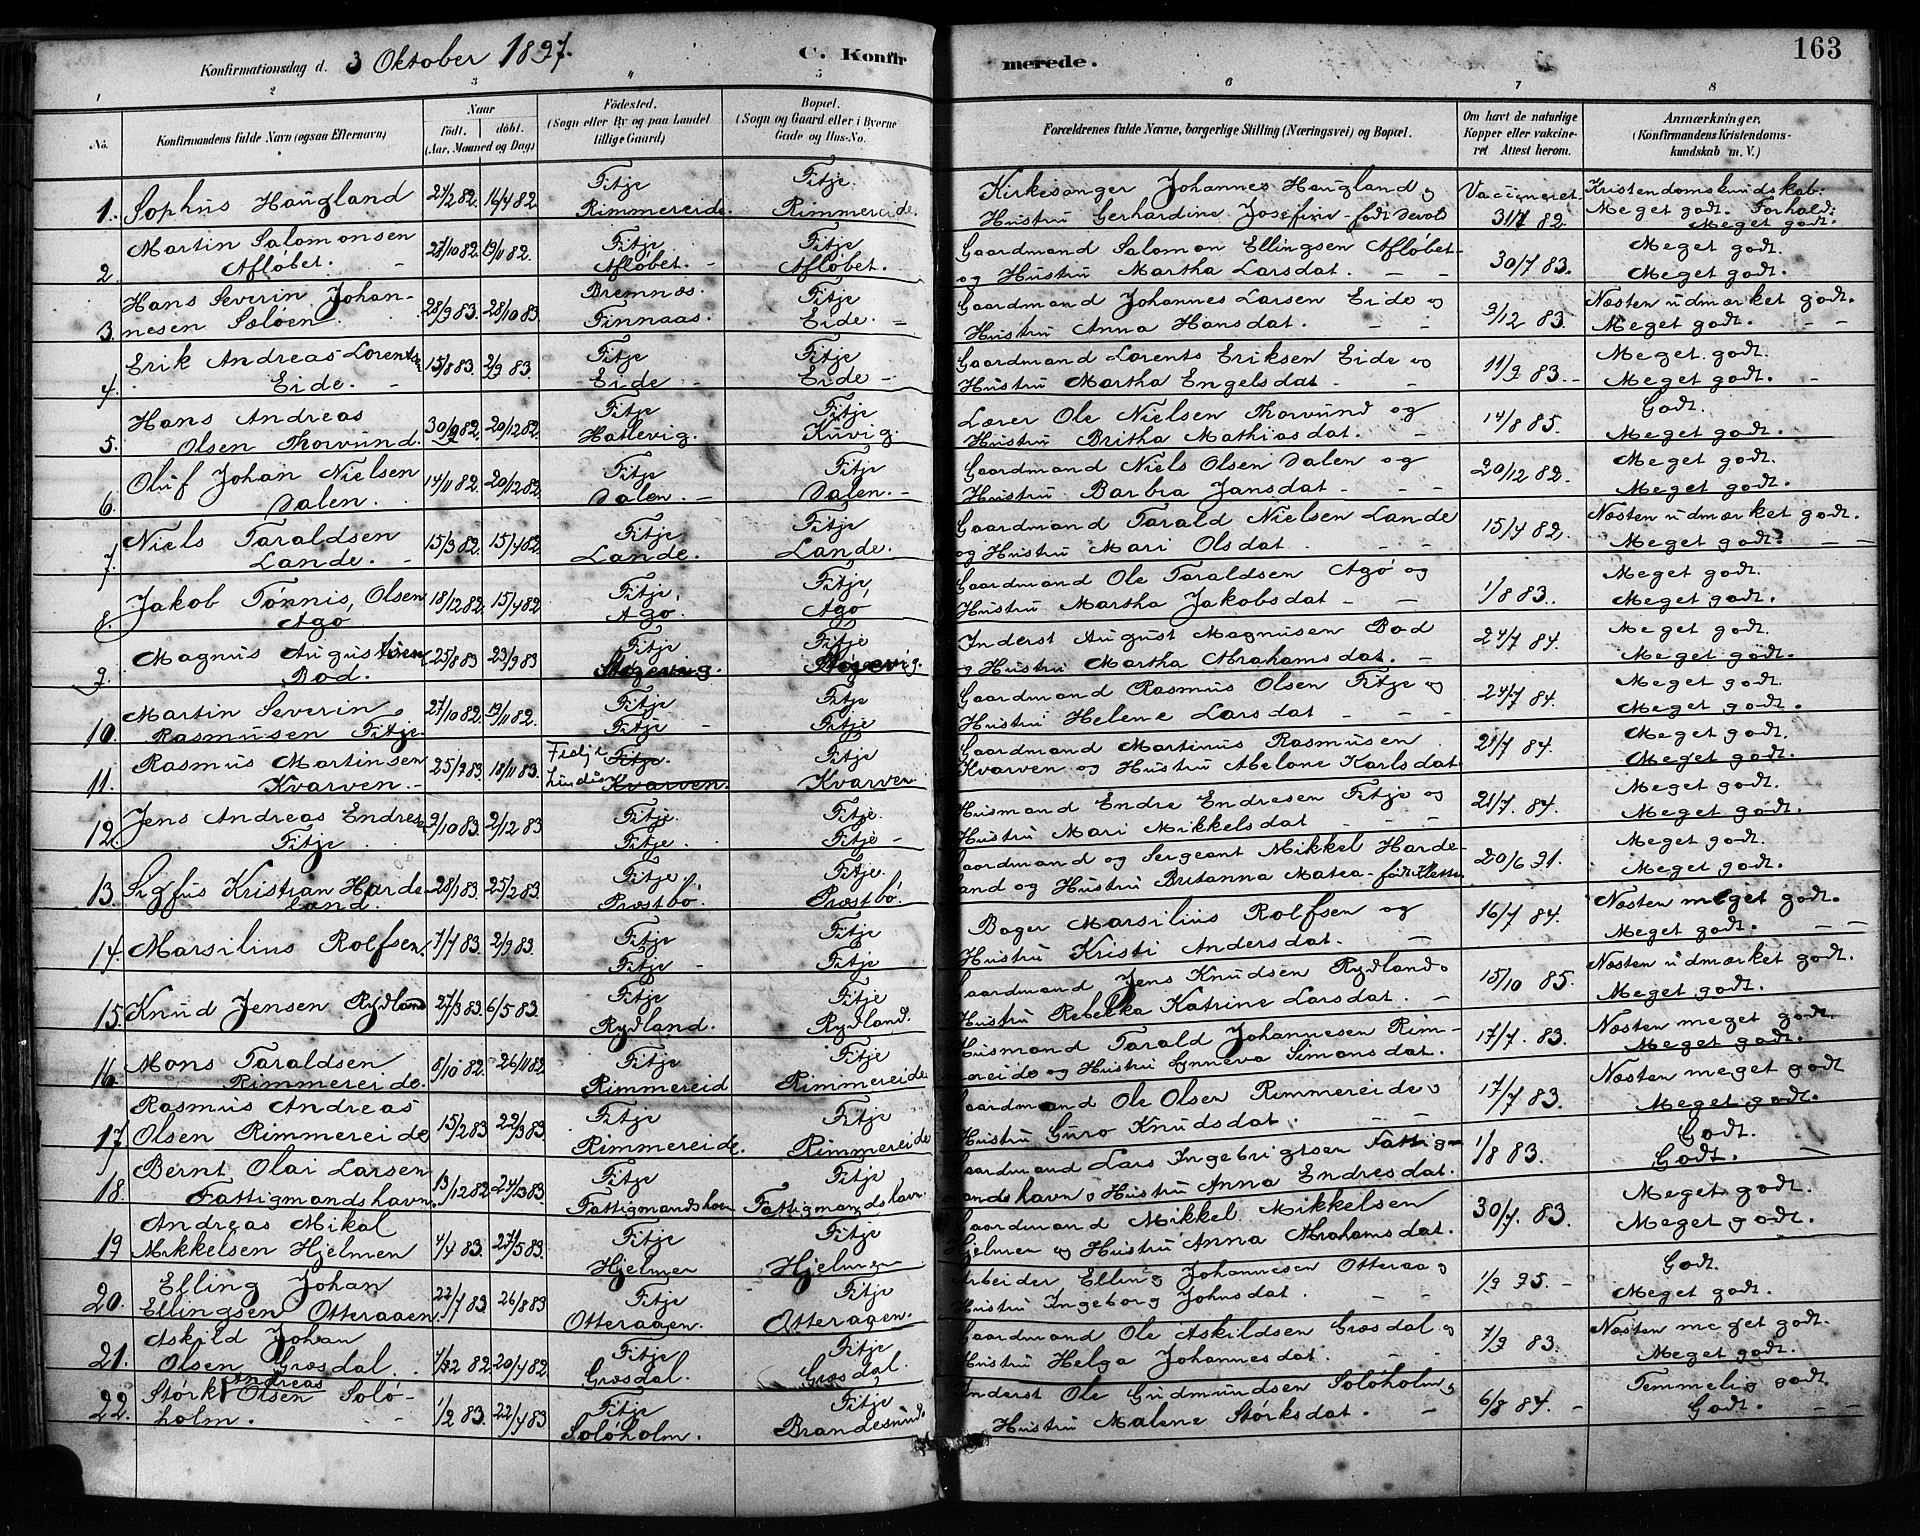 163
Konfirmationsdag d. 3 Oktober 1897.
C. Konfirmerede.
1 2 3 4 5 6 7 8
No. Konfirmandens fulde Navn (ogsaa Efternavn)
Naar født. døbt. (Aar, Maaned og Dag)
Fødested. (Sogn eller By og paa Landet tillige Gaard)
Bopæl. (Sogn og Gaard eller i Byerne Gade og Hus-No.
Forældrenes fulde Navne, borgerlige Stilling (Næringsvei) og Bopæl.
Om havt de naturlige Kopper eller vakcineret Attest herom.
Anmærkninger, (Konfirmandens Kristendomskundskab m. V.)
1. Sophus Haugland 27/2 82 16/4 82. Fitje Rimmereide. Fitje. Rimmereide. Kirkesanger Johannes Haugland og Hustru Gerhardine Josefine født Vaccineret 31/7 82. Kristendomskundskab: Meget godt. Forhold: Meget godt.
2. Martin Salomonsen Afløbet. 27/10 82. 19/11 82. Fitje Afløbet. Fitje. Afløbet. Gaardmand Salomon Ellingsen Afløbet og Hustru Martha Larsdat. 30/7 83. Meget godt. Meget godt.
3. Hans Severin Johannesen Sæløen. 28/9 83. 28/10 83 Bremnæs. Finnaas. Fitje Eide. Gaardmand Johannes Larsen Eide og Hustru Anna Hansdat. 9/12 83. Næsten udmærket godt. Meget godt.
4. Erik Andreas Lorentsen Eide. 15/8 83. 2/9 83. Fitje Eide Fitje Eide Gaardmand Lorents Eriksen Eide og Hustru Martha Engelsdat 11/9 83. Meget godt. Meget godt.
5. Hans Andreas Olsen Thorvund. 30/9 82. 20/12 82 Fitje Hatlevig. Fitje Kuvig. Lærer Ole Nielsen Thorvund og Hustru Britha Mathiasdat. 14/8 85. Godt. Meget godt.
6. Oluf Johan Nielsen Dalen. 14/11 82. 20/12 82 Fitje Dalen. Fitje Dalen. Gaardmand Niels Olsen Dalen og Hustru Barbra Jansdat 20/12 82. Meget godt. Meget godt.
7. Niels Taraldsen Lande. 15/3 82. 15/4 82. Fitje Lande. Fitje Lande. Gaardmand Tarald Nielsen Lande og Hustru Mari Olsdat. 15/4 82. Næsten udmærket godt. Meget godt.
8. Jakob Tønnis, Olsen Agø 18/12 82. 15/4 82. Fitje, Agø. Fitje, Agø Gaardmand Ole Taraldsen Agø og Hustru Martha Jakobsdat 1/8 83. Meget godt. Meget godt.
9. Magnus Augustinsen Bod. 25/8 83 23/9 83 Fitje Fitje Inderst August Magnusen Bod og Hustru Martha Abrahamsdat. 24/7 84. Meget godt. Meget godt.
10. Martin Severin Rasmusen Fitje. 27/10 82. 19/11 82. Fitje Fitje Fitje. Fitje Gaardmand Rasmus Olsen Fitje og Hustru Helene Larsdat 24/7 84. Meget godt. Meget godt.
11. Rasmus Martinsen Kvarven. 25/9 83. 18/11 83. Fitje. Kvarven. Fitje Kvarven Gaardmand Martinus Rasmusen Kvarven og Hustru Abelone Karlsdat. 21/7 84. Meget godt. Meget godt.
12. Jens Andreas Endresen Fitje 9/10 83. 2/12 83 Fitje. Fitje. Fitje. Fitje Husmand Endre Endresen Fitje og Hustru Mari Mikkelsdat 21/7 84. Meget godt. Meget godt.
13. Sigfus Kristian Hardeland. 28/1 83. 25/2 83. Fitje. Præstbø. Fitje. Præstbø. Gaardmand og Sergeant Mikkel Hardeland og Hustru Britanna Matea født 20/6 91. Meget godt. Meget godt.
14. Marsilius Rolfsen. 7/7 83. 2/9 83. Fitje Fitje Fitje Fitje Bager Marsilius Rolfsen og Hustru Kristi Andersdat. 16/7 84. Næsten meget godt. Meget godt.
15. Knud Jensen Rydland 27/3 83. 6/5 83. Fitje Rydland. Fitje Rydland. Gaardmand Jens Knudsen Rydland og Hustru Rebekka Katrine Larsdat. 15/10 85. Næsten udmærket godt. Meget godt.
16. Mons Taraldsen Rimmereide. 8/10 82. 26/11 82. Fitje Rimmereid Fitje Rimmereide Husmand Tarald Johannesen Rimmereide og Hustru Synneva Simonsdat. 17/7. 83. Næsten meget godt. Meget godt.
17. Rasmus Andreas Olsen Rimmereide 15/2 83. 22/3 83. Fitje Rimmereide. Fitje Rimmereide Gaardmand Ole Olsen Rimmereide og Hustru Guro Knudsdat 17/7 83. Næsten meget godt Meget godt.
18. Bernt Olai Larsen Fattigmandshavn. 13/12 82. Fitje Fattigmandshavn Fitje Fattigmandshavn. Gaardmand Lars Ingebrigtsen Fattigmandshavn og Hustru Anna Endresdat. 1/8 83. Godt. Godt.
19. Andreas Mikal Mikkelsen Hjelmen 4/4 83. 27/5 83. Fitje Hjelmen Fitje Hjelmen Gaardmand Mikkel Mikkelsen Hjelmen og Hustru Anna Abrahamsdat. 30/7. 83. Meget godt. Meget godt.
20. Elling Johan Ellingsen Otteraaen. 22/7 83. 26/8 83 Fitje Otteraaen. Fitje Otteraaen. Arbeider Elling Johannesen Otteraa og Hustru Ingeborg Johnsdat. 1/9 95. Godt. Meget godt.
21. Askild Johan Olsen Græsdal. 20/4 82. Fitje Græsdal. Fitje Græsdal. Gaardmand Ole Askildsen Græsdal og Hustru Helga Johannesdat. 7/9 83. Næsten meget godt. Meget godt.
22. Størk Andreas Olsen Soløholm. 1/2 83. 22/4 83. Fitje Soløholm. Fitje Brandesund. Inderst Ole Gudmundsen Soløholm og Hustru Malene Størksdat. 6/8 84. Temmelig godt. Godt.